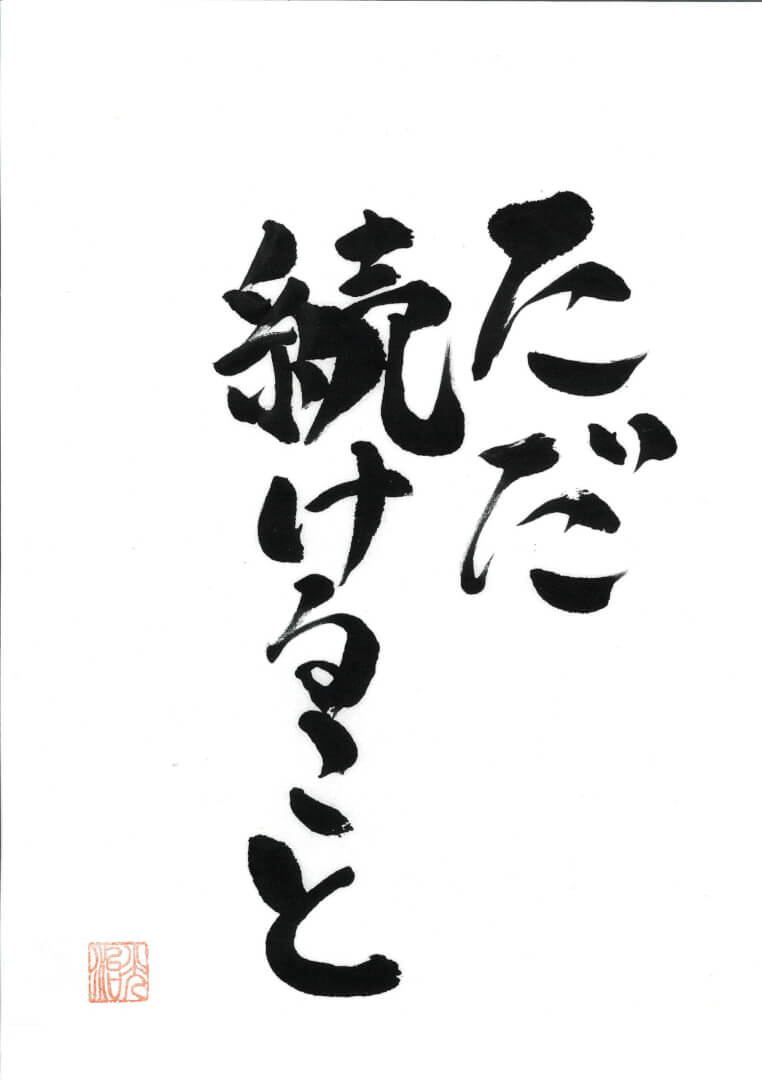 ただ
続けること